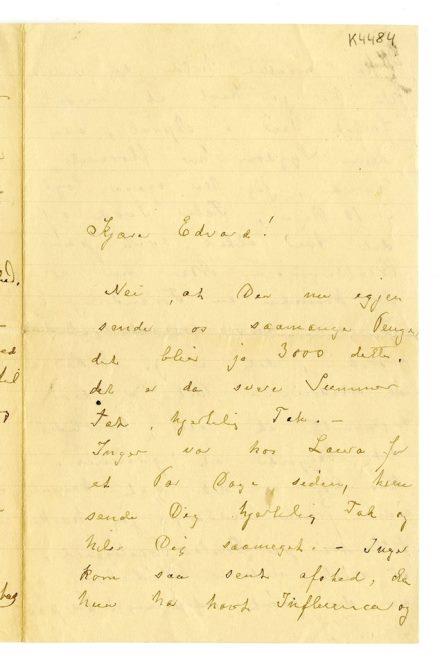 K4484
Kjære Edvard!
Nei, at Der nu egjen
sende os saamange Penge
det blir jo 3000 dette,
det er da svere Summer
Tak, hjertelig Tak. —
Inger var hos Laura for
et Par Dage siden, hun
sende Dig hjertelig Tak og
hilse Dig saameget. — Inger
kom saa sent afsted, da
hun ha havt Influenca og